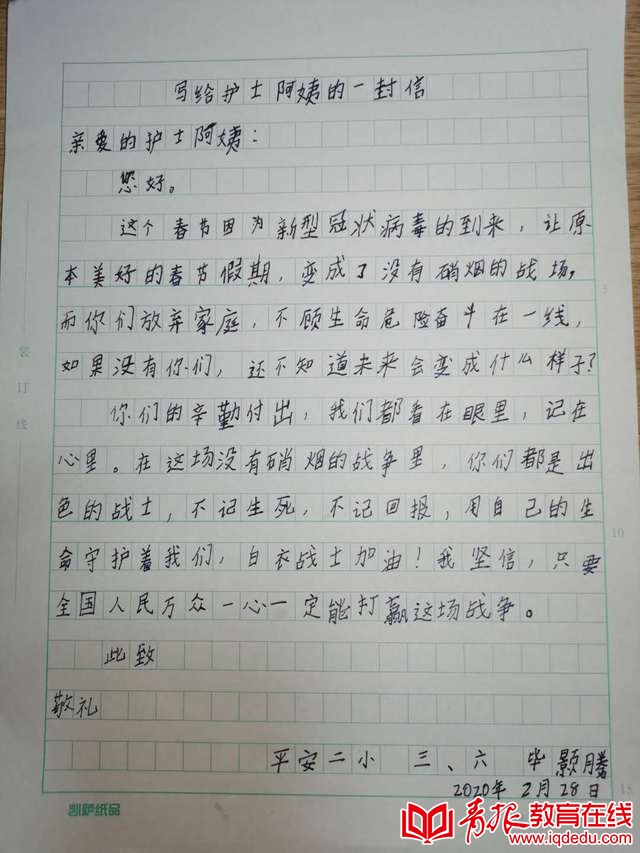 写给护士阿姨的一封信
亲爱的护士阿姨：
您好。
这个春节因为新型冠状病毒的到来，让原
本美好的春节假期，变成了没有硝烟的战场。
而你们放弃家庭，不顾生命危险奋斗在一线，
如果没有你们，还不知道未来会变成什么样子？
你们的辛勤付出，我们都看在眼里，记在
心里。在这场没有硝烟的战争里，你们都是出
色的战士，不记生死，不记回报，用自己的生
命守护着我们，白衣战士加油！我坚信，只要
全国人民万众一心一定能打赢这场战争。
此致
敬礼
平安二小 三、六 毕颢腾
2020年2月28日
装订线
5
10
15
凯萨纸品
青报教育在线
www.iqdedu.com